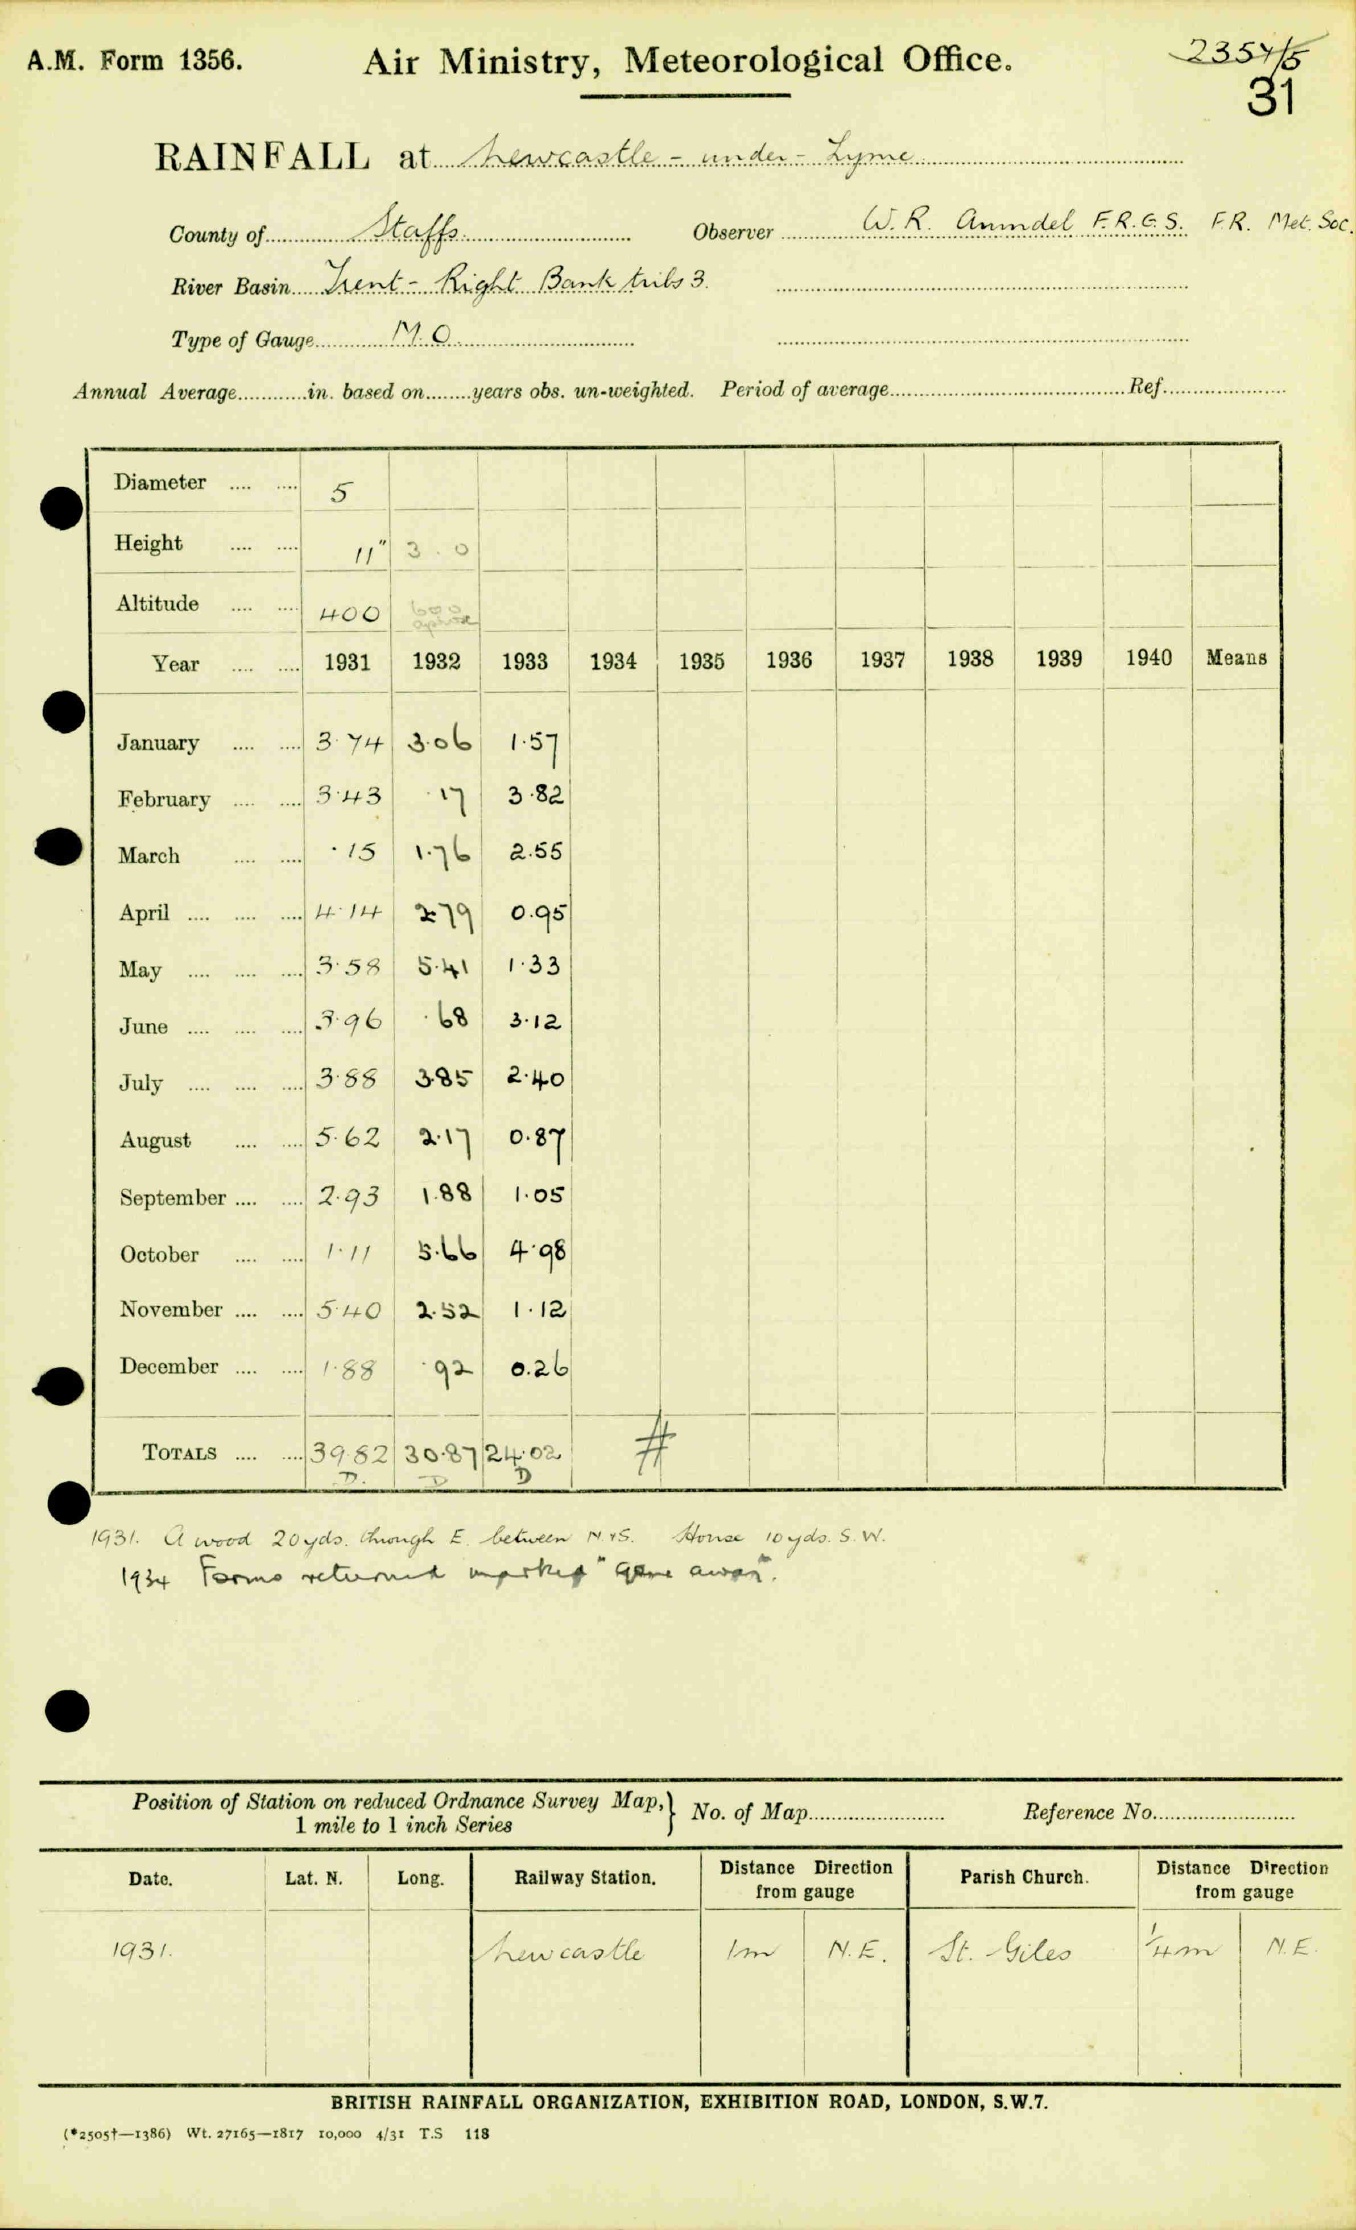 A.M. Form 1356.
Air Ministry, Meteorological Office.
2354/5
31
RAINFALL at Newcastle - under - Lyme
County of Staffs. Observer W.R. Arundel F.R.G.S. F.R. Met. Soc.
River Basin Trent - Right Bank tribs 3.
Type of Gauge M.O.
Annual Average in. based on years obs. un-weighted. Period of average Ref.
Diameter 5
Height 11" 3 . 0
Altitude 400 600 approx
Year 1931 1932 1933 1934 1935 1936 1937 1938 1939 1940 Means
January 3.74 3.06 1.57
February 3.43 .17 3.82
March .15 1.76 2.55
April 4.14 2.79 0.95
May 3.58 5.41 1.33
June 3.96 .68 3.12
July 3.88 3.85 2.40
August 5.62 2.17 0.87
September 2.93 1.88 1.05
October 1.11 5.66 4.98
November 5.40 2.52 1.12
December 1.88 .92 0.26
TOTALS 39.82 30.87 24.02 #
D. D D
1931. A wood 20yds. through E. between N & S. House 10yds. S.W.
1934 Forms returned marked "Gone away".
Position of Station on reduced Ordnance Survey Map, } No. of Map Reference No.
1 mile to 1 inch Series
Date. Lat. N. Long. Railway Station. Distance Direction from gauge Parish Church. Distance Direction from gauge
1931. Newcastle 1m N.E. St. Giles 1/4m N.E.
BRITISH RAINFALL ORGANIZATION, EXHIBITION ROAD, LONDON, S.W.7.
(*2505†—1386) Wt. 27165—1817 10,000 4/31 T.S 118